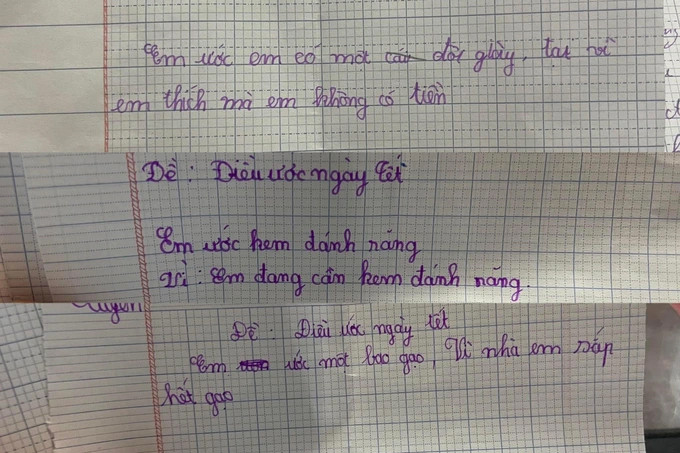 Em ước em có một cái đôi giày, tại vì
em thích mà em không có tiền
Đề: Điều ước ngày tết
Em ước kem đánh răng
Vì: Em đang cần kem đánh răng.
Đề: Điều ước ngày tết
Em ước một bao gạo, Vì nhà em sắp
hết gạo